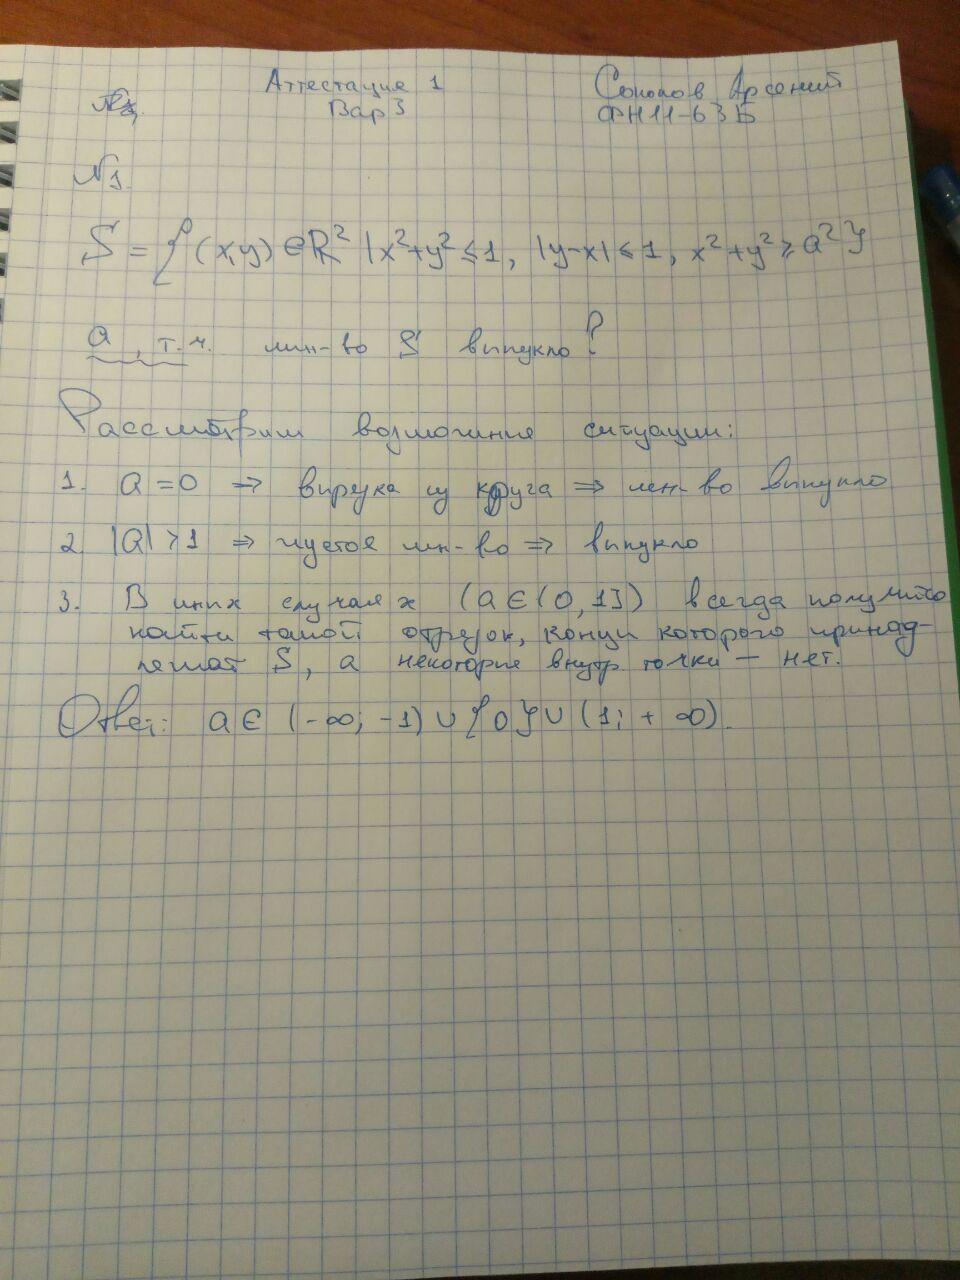 Аттестация 1
Соколов Арсений
Вар 3
ФН11-63Б
№1.
S = {(x,y) ∈ R² | x²+y² ≤ 1, |y-x| ≤ 1, x²+y² ≥ a²}
a, т.ч. мн-во S выпукло?
Рассмотрим возможные ситуации:
1. a = 0 ⇒ вырезка из круга ⇒ мн-во выпукло
2. |a| > 1 ⇒ пустое мн-во ⇒ выпукло
3. В иных случаях (a ∈ (0, 1]) всегда получится
найти такой отрезок, концы которого принад-
лежат S, а некоторые внутр точки — нет.
Ответ: a ∈ (-∞; -1) ∪ {0} ∪ (1; +∞).